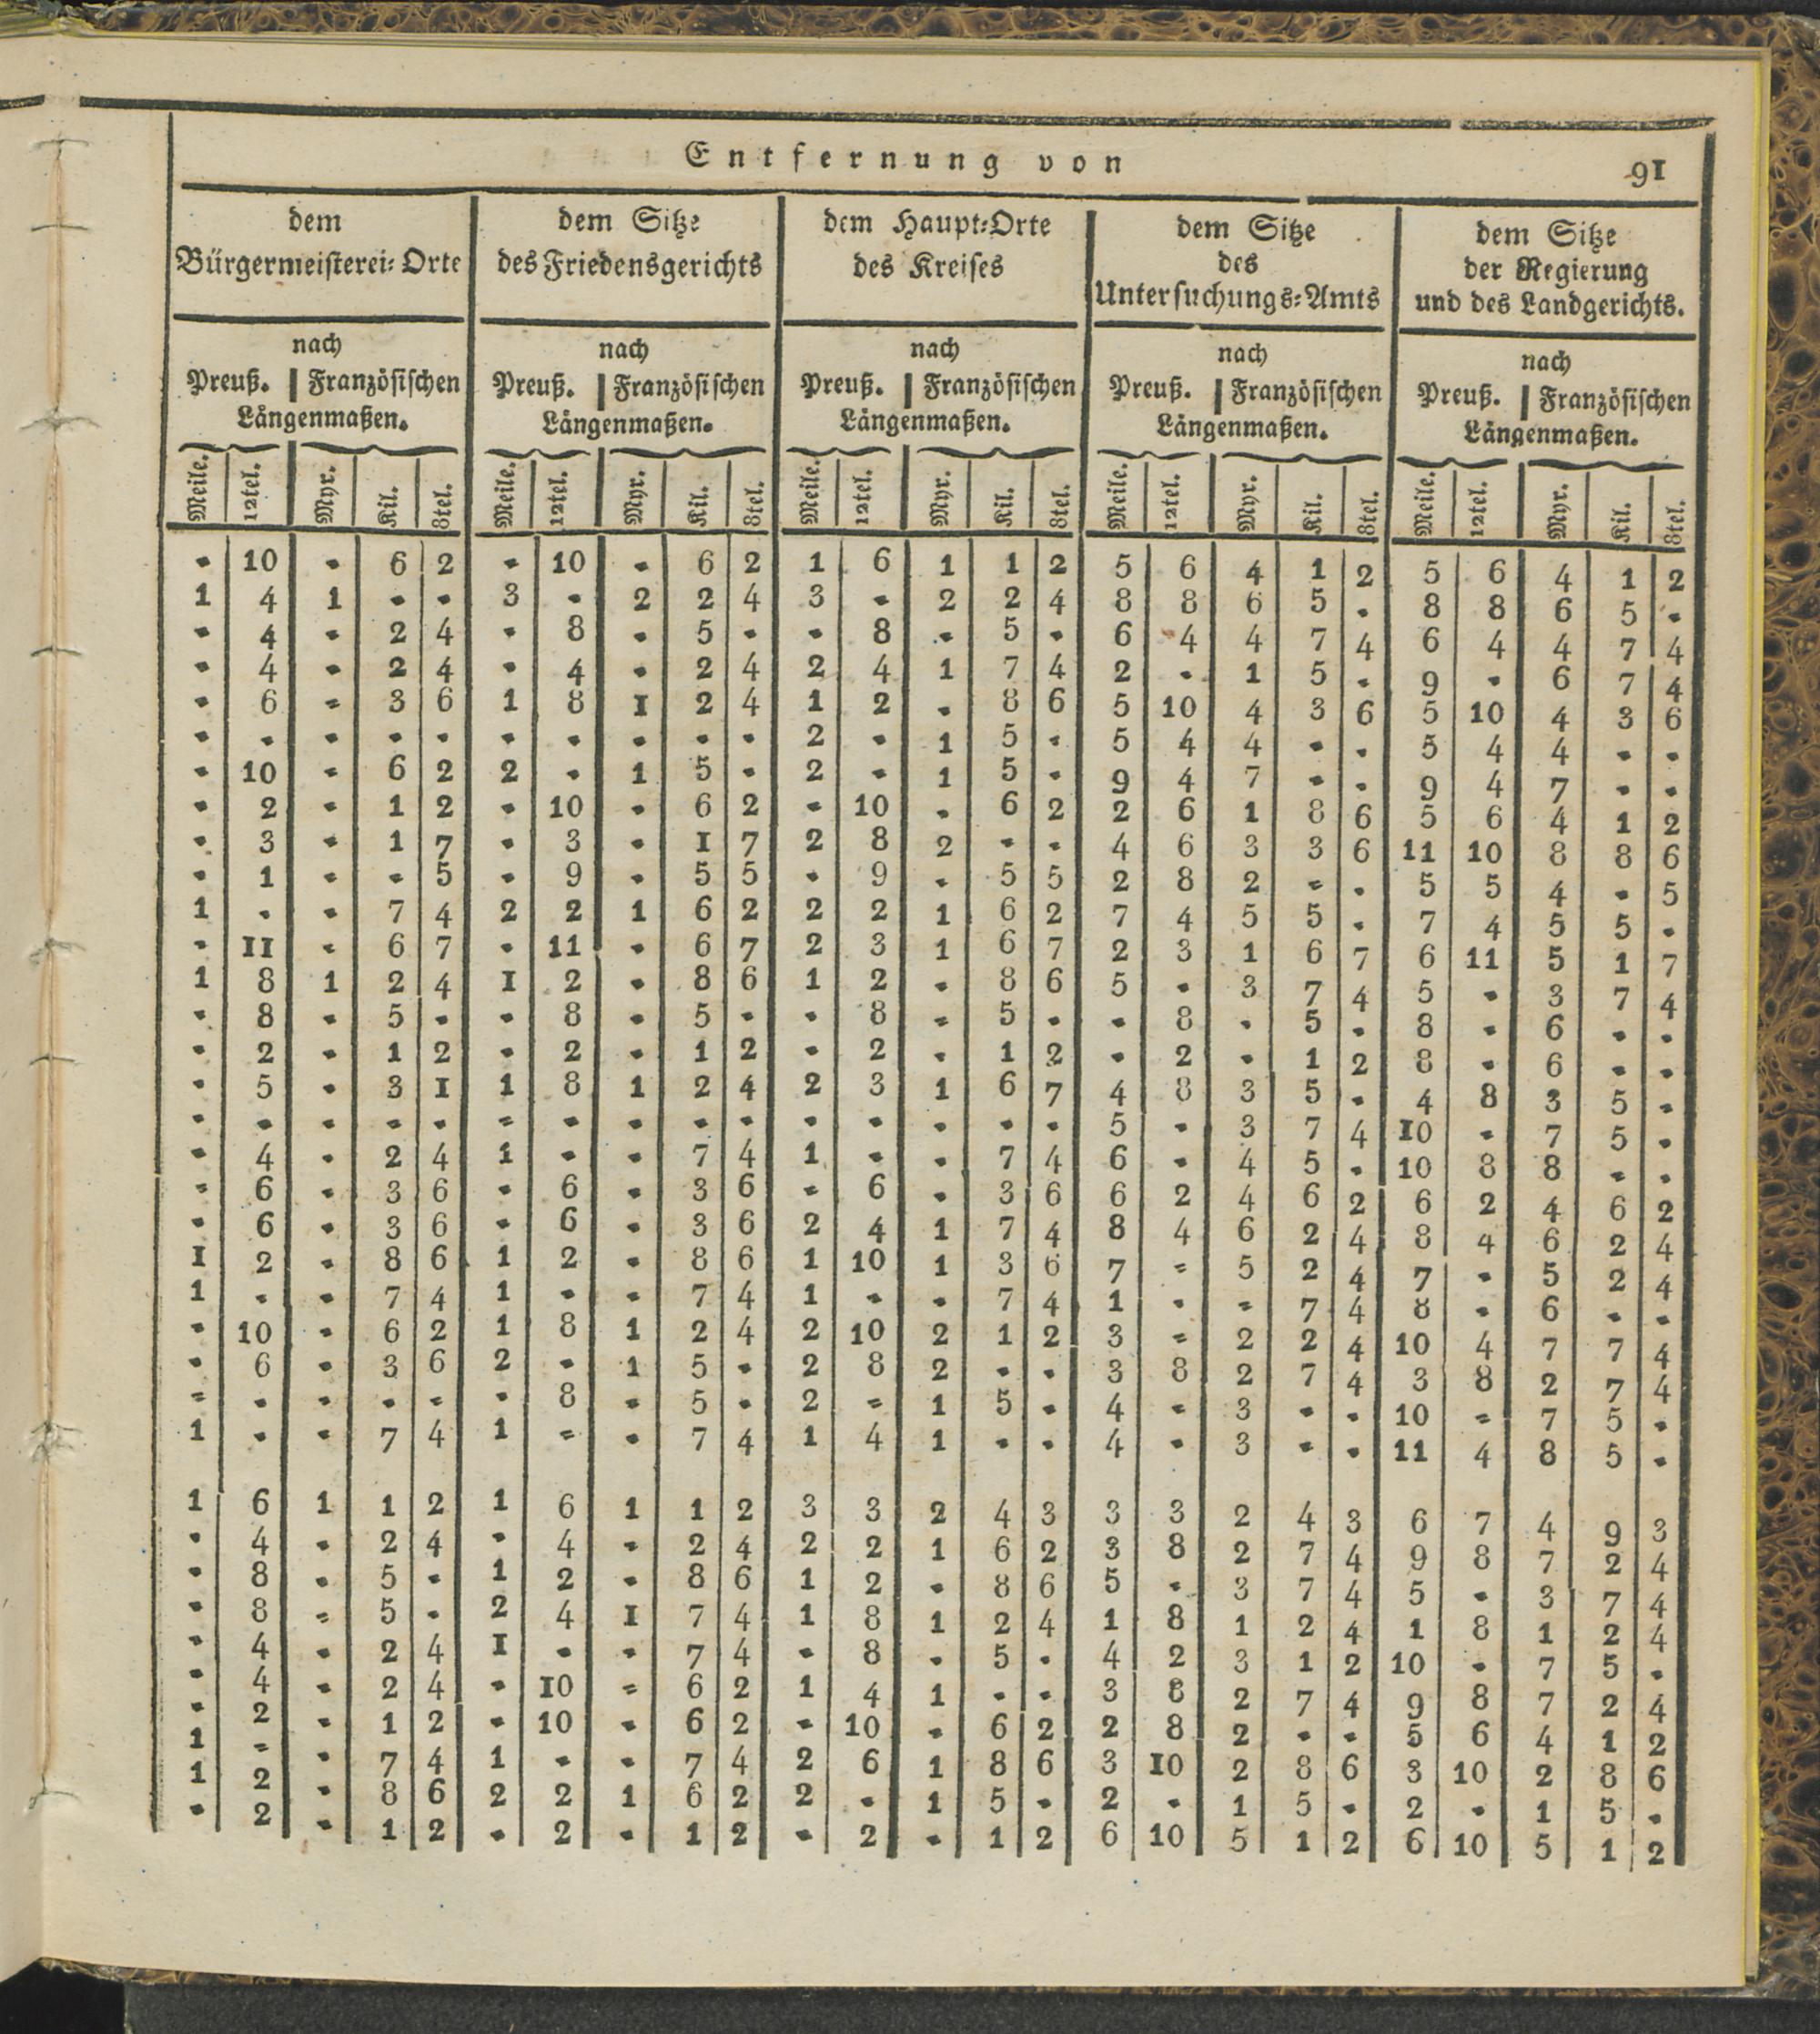 Entfernung von
91
dem
Bürgermeisterei= Orte
dem Sitze
des Friedensgerichts
dem Haupt=Orte
des Kreises
dem Sitze
des
Untersuchungs=Amts
dem Sitze
der Regierung
und des Landgerichts.
nach
Preuß. | Französischen
Längenmaßen.
nach
Preuß. | Französischen
Längenmaßen.
nach
Preuß. | Französischen
Längenmaßen.
nach
Preuß. | Französischen
Längenmaßen.
nach
Preuß. | Französischen
Längenmaßen.
Meile. 12tel. Myr. Kil. 8tel. Meile. 12tel. Myr. Kil. 8tel. Meile. 12tel. Myr. Kil. 8tel. Meile. 12tel. Myr. Kil. 8tel. Meile. 12tel. Myr. Kil. 8tel.
= 10 = 6 2 = 10 = 6 2 1 6 1 1 2 5 6 4 1 2 5 6 4 1 2
1 4 1 = = 3 = 2 2 4 3 = 2 2 4 8 8 6 5 = 8 8 6 5 =
= 4 = 2 4 = 8 = 5 = = 8 = 5 = 6 4 4 7 4 6 4 4 7 4
= 4 = 2 4 = 4 = 2 4 2 4 1 7 4 2 = 1 5 = 9 = 6 7 4
= 6 = 3 6 1 8 1 2 4 1 2 = 8 6 5 10 4 3 6 5 10 4 3 6
= = = = = = = = = = 2 = 1 5 = 5 4 4 = = 5 4 4 = =
= 10 = 6 2 2 = 1 5 = 2 = 1 5 = 9 4 7 = = 9 4 7 = =
= 2 = 1 2 = 10 = 6 2 = 10 = 6 2 2 6 1 8 6 5 6 4 1 2
= 3 = 1 7 = 3 = 1 7 2 8 2 = = 4 6 3 3 6 11 10 8 8 6
= 1 = = 5 = 9 = 5 5 = 9 = 5 5 2 8 2 = = 5 5 4 = 5
1 = = 7 4 2 2 1 6 2 2 2 1 6 2 7 4 5 5 = 7 4 5 5 =
= 11 = 6 7 = 11 = 6 7 2 3 1 6 7 2 3 1 6 7 6 11 5 1 7
1 8 1 2 4 1 2 = 8 6 1 2 = 8 6 5 = 3 7 4 5 = 3 7 4
= 8 = 5 = = 8 = 5 = = 8 = 5 = = 8 = 5 = 8 = 6 = =
= 2 = 1 2 = 2 = 1 2 = 2 = 1 2 = 2 = 1 2 8 = 6 = =
= 5 = 3 1 1 8 1 2 4 2 3 1 6 7 4 8 3 5 = 4 8 3 5 =
= = = = = = = = = = = = = = = 5 = 3 7 4 10 = 7 5 =
= 4 = 2 4 1 = = 7 4 1 = = 7 4 6 = 4 5 = 10 8 8 = =
= 6 = 3 6 = 6 = 3 6 = 6 = 3 6 6 2 4 6 2 6 2 4 6 2
= 6 = 3 6 = 6 = 3 6 2 4 1 7 4 8 4 6 2 4 8 4 6 2 4
1 2 = 8 6 1 2 = 8 6 1 10 1 3 6 7 = 5 2 4 7 = 5 2 4
1 = = 7 4 1 = = 7 4 1 = = 7 4 1 = = 7 4 8 = 6 = =
= 10 = 6 2 1 8 1 2 4 2 10 2 1 2 3 = 2 2 4 10 4 7 7 4
= 6 = 3 6 2 = 1 5 = 2 8 2 = = 3 8 2 7 4 3 8 2 7 4
= = = = = = 8 = 5 = 2 = 1 5 = 4 = 3 = = 10 = 7 5 =
1 = = 7 4 1 = = 7 4 1 4 1 = = 4 = 3 = = 11 4 8 5 =
1 6 1 1 2 1 6 1 1 2 3 3 2 4 3 3 3 2 4 3 6 7 4 9 3
= 4 = 2 4 = 4 = 2 4 2 2 1 6 2 3 8 2 7 4 9 8 7 2 4
= 8 = 5 = 1 2 = 8 6 1 2 = 8 6 5 = 3 7 4 5 = 3 7 4
= 8 = 5 = 2 4 1 7 4 1 8 1 2 4 1 8 1 2 4 1 8 1 2 4
= 4 = 2 4 1 = = 7 4 = 8 = 5 = 4 2 3 1 2 10 = 7 5 =
= 4 = 2 4 = 10 = 6 2 1 4 1 = = 3 8 2 7 4 9 8 7 2 4
= 2 = 1 2 = 10 = 6 2 = 10 = 6 2 2 8 2 = = 5 6 4 1 2
1 = = 7 4 1 = = 7 4 2 6 1 8 6 3 10 2 8 6 3 10 2 8 6
1 2 = 8 6 2 2 1 6 2 2 = 1 5 = 2 = 1 5 = 2 = 1 5 =
= 2 = 1 2 = 2 = 1 2 = 2 = 1 2 6 10 5 1 2 6 10 5 1 2